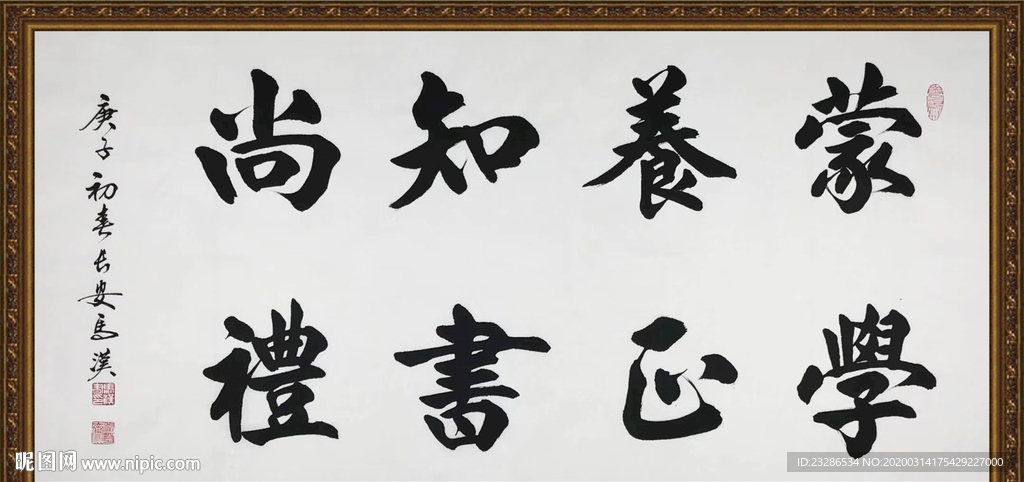 蒙學
養正
知書
尚禮
庚子初春長安馬漢
昵图网 www.nipic.com
ID:23286534 NO:20200314175429227000